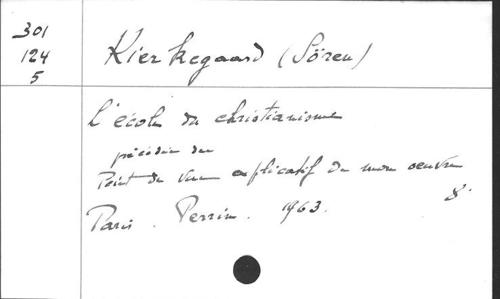 301
124
5
Kierkegaard (Sören)
L'école du christianisme
précédée du
Point de vue explicatif de mon oeuvre
8°
Paris. Perrin. 1963.